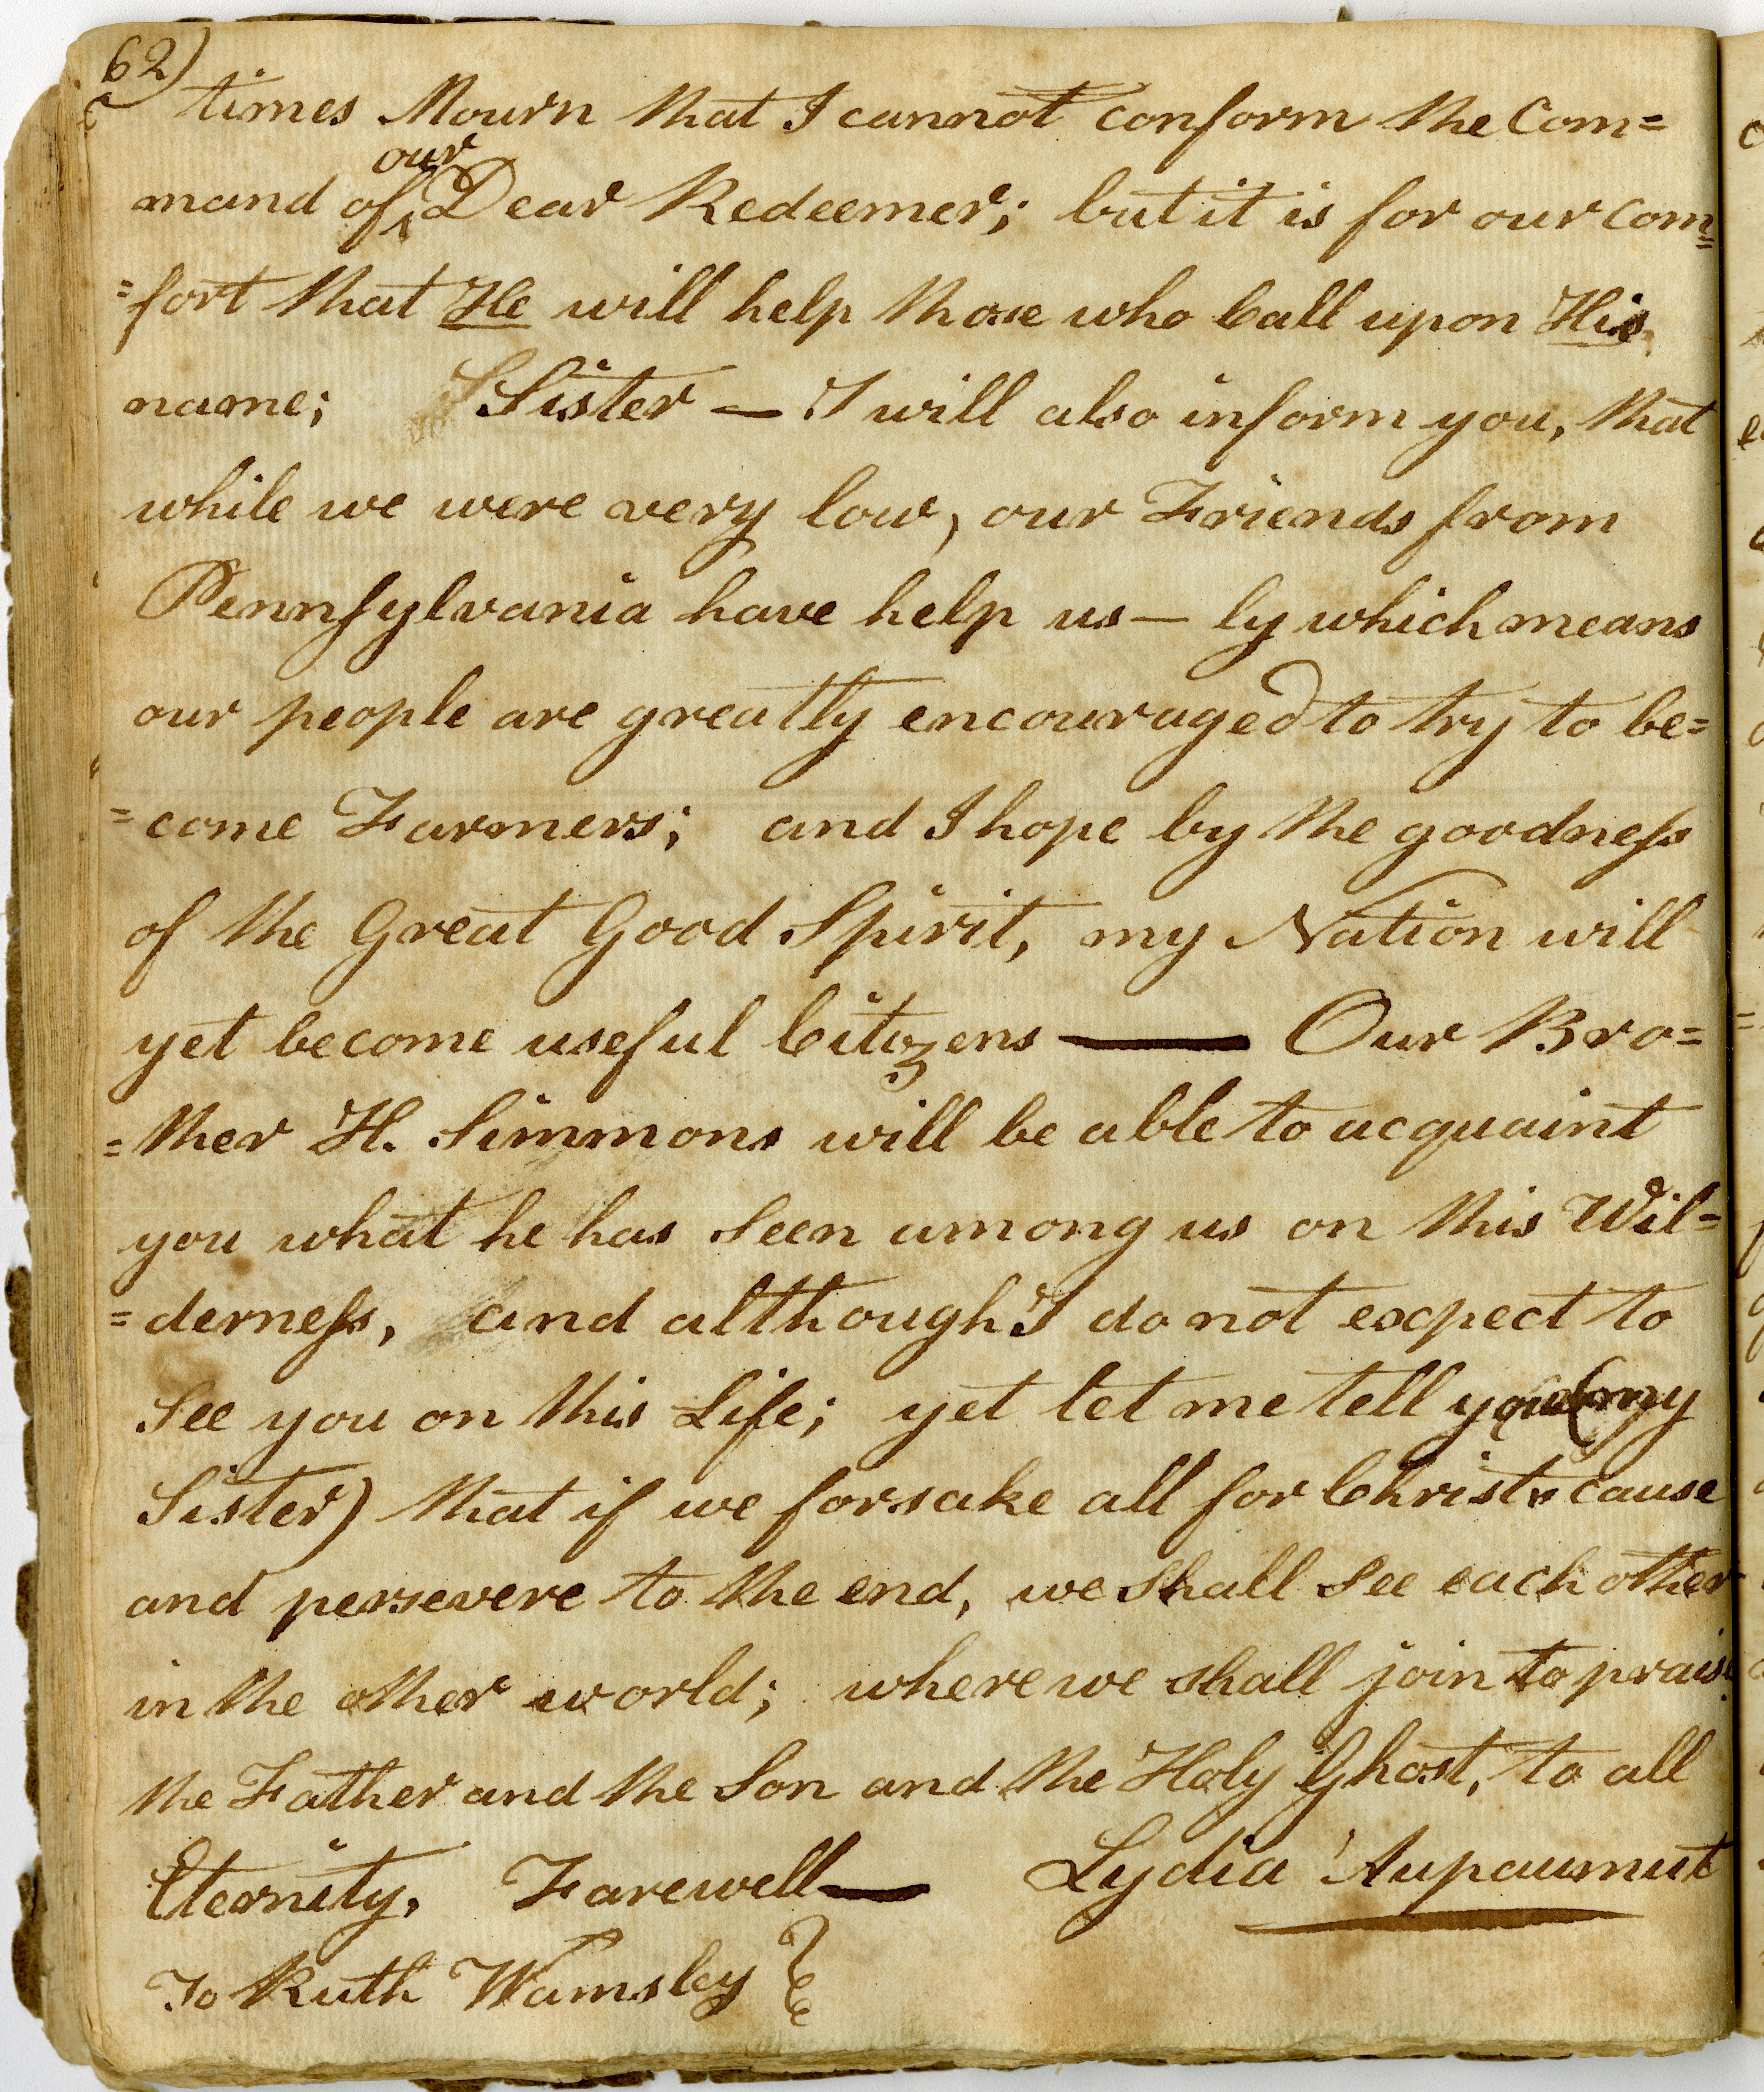 62)
times Mourn that I cannot conform the Com=
our
mand of ‸ Dear Redeemer; but it is for our com=
=fort that He will help those who Call upon His
name; Sister — I will also inform you, that
while we were very low, our Friends from
Pennſylvania have help us — by which means
our people are greatly encouraged to try to be=
=come Farmers; and I hope by the goodneſs
of the Great Good Spirit, my Nation will
yet become useful Citizens —— Our Bro=
=ther H. Simmons will be able to acquaint
you what he has seen among us on this Wil=
=derneſs, and although I do not expect to
See you on this Life; yet let me tell you (my
Sister) that if we forsake all for Christs cause
and persevere to the end, we shall see each other
in the other world; where we shall join to praise
the Father and the Son and the Holy Ghost, to all
Eternity, Farewell — Lydia Aupaumut
To Ruth Wamsley }